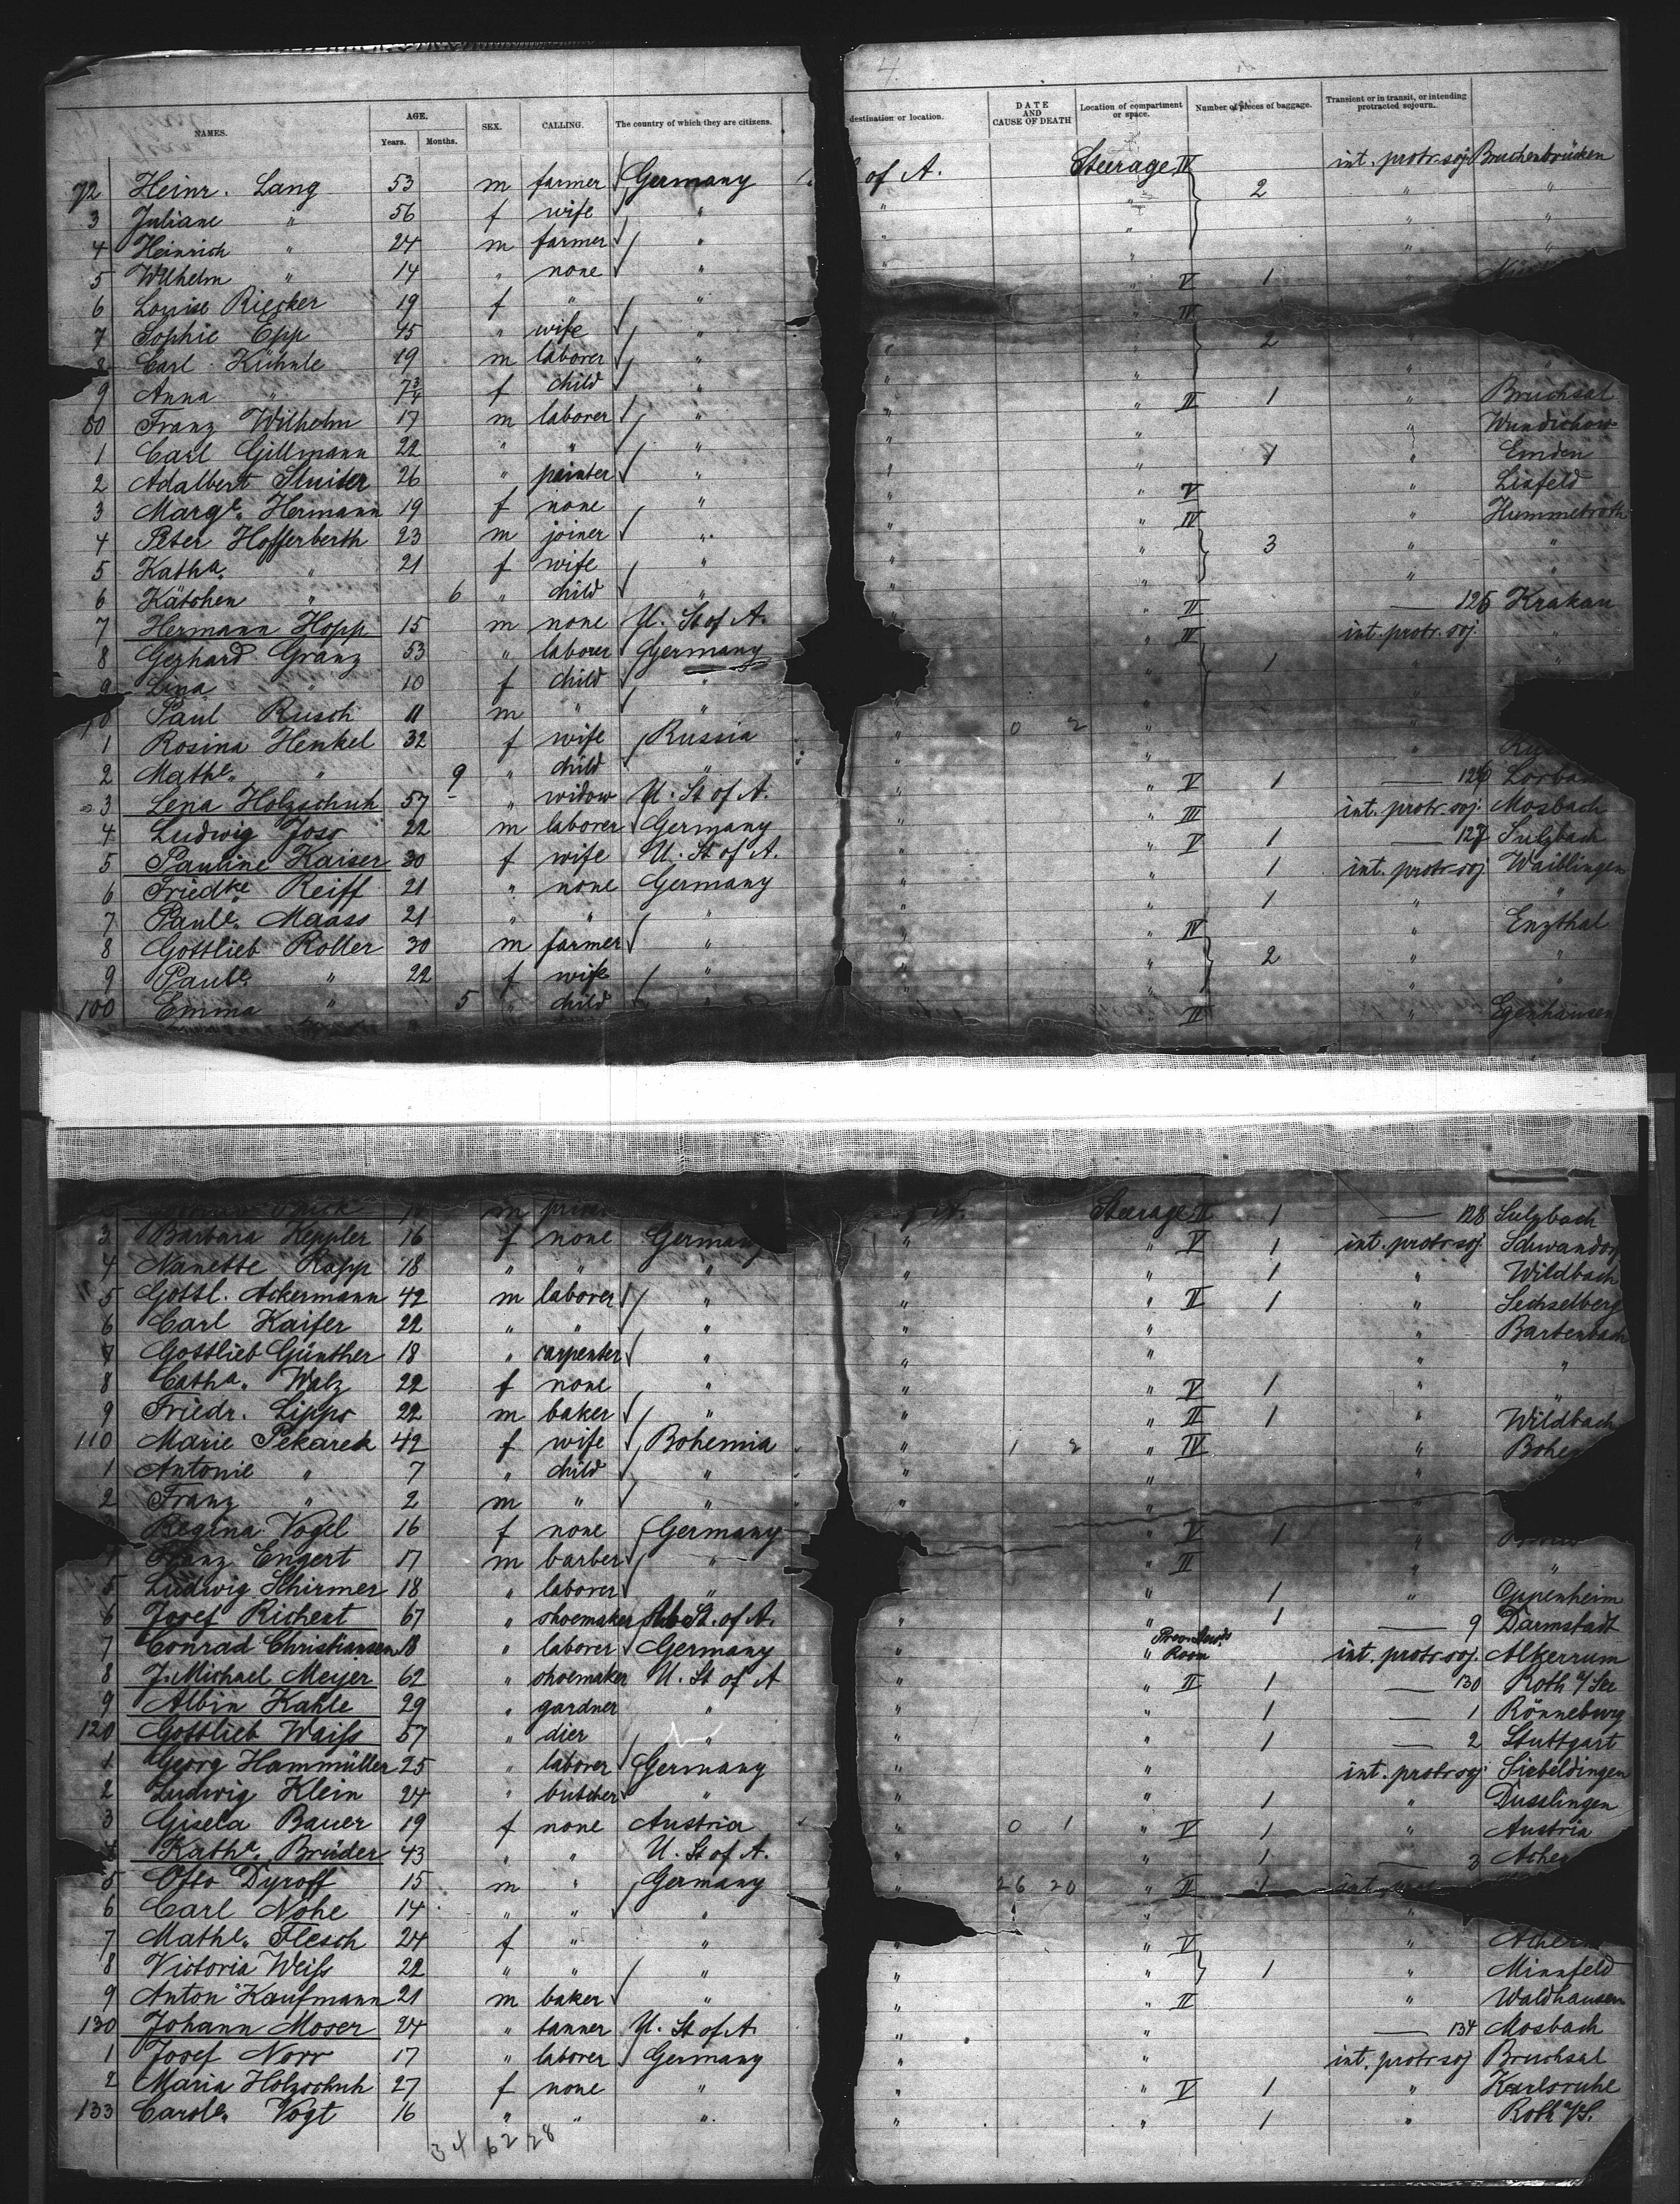 4.
NAMES. AGE. Years. Months. SEX. CALLING. The country of which they are citizens. destination or location. DATE AND CAUSE OF DEATH Location of compartment or space. Number of pieces of baggage. Transient or in transit, or intending protracted sojourn.
72 Heinr. Lang 53 m farmer Germany of A. Steerage IV 2 int. protr. soj. Bruchenbrücken
3 Juliane " 56 f wife " " " " "
4 Heinrich " 24 m farmer " " " " "
5 Wilhelm " 14 " none " "
6 Louise Riecker 19 f " " " V 1
7 Sophie Epp 45 " wife " " " IV 2
8 Carl Kühnle 19 m laborer " " "
9 Anna " 7 3/4 f child " " "
80 Franz Wilhelm 17 m laborer " " " II 1 " Bruchsal
1 Carl Gillmann 22 " " " " " " Wundichow
2 Adalbert Sluiter 26 " painter " " " 1 " Emden
3 Marge. Hermann 19 f none " " " V " Linfeld
4 Peter Hofferberth 23 m joiner " " " IV 3 " Hummetroth
5 Katha. " 21 f wife " " " " "
6 Kätchen " 6 " child " " " " "
7 Hermann Hopp 15 m none U. St of A. " " II — 125 Krakau
8 Gerhard Granz 53 " laborer Germany " IV 1 int. protr. soj. "
9 Lina " 10 f child " " " "
90 Paul Rusch 11 m " " "
1 Rosina Henkel 32 f wife Russia " 0 2 "
2 Mathe. " 9 " child " " "
3 Lena Holzschuh 57 " widow U. St of A. " " V 1 — 126
4 Ludwig Joss 22 m laborer Germany " " III int. protr. soj. Mosbach
5 Pauline Kaiser 30 f wife U. St of A. " " V 1 — 127 Sulzbach
6 Friedke. Reiff 21 " none Germany " " 1 int. protr. soj Waiblingen
7 Paule. Maass 21 " " " " " 1 " "
8 Gottlieb Roller 30 m farmer " " " IV 2 " Enzthal
9 Paule. " 22 f wife " " " " "
100 Emma " 5 " child " " " " "
" II " Egenhausen
m Steerage II 1 — 128 Sulzbach
3 Barbara Keppler 16 f none Germany " " V 1 int. protr. soj.
4 Nanette Rapp 18 " " " " " 1 " Wildbach
5 Gottl. Ackermann 42 m laborer " " " II 1 " Sechselberg
6 Carl Kaifer 22 " " " " " " Bartenbach
7 Gottlieb Günther 18 " carpenter " " " " "
8 Catha. Walz 22 f none " " " V 1 " "
9 Friedr. Lipps 22 m baker " " " II 1 " Wildbach
110 Marie Pekarek 42 f wife Bohemia " 1 2 " IV "
1 Antonie " 7 " child " " " "
2 Franz " 2 m " " " "
Regina Vogel 16 f none Germany " V 1 "
Franz Engert 17 m barber " " II " "
5 Ludwig Schirmer 18 " laborer " " 1 " Oppenheim
6 Josef Richert 67 " shoemaker U. St. of A. " " 1 — 9 Darmstadt
7 Conrad Christiansen 18 " laborer Germany " " Room int. protr. soj. Alkerrum
8 J. Michael Meyer 62 " shoemaker U. St of A " " II 1 — 130 Roth a/See
9 Albin Kahle 29 " gardner " " " 1 — 1 Rönneburg
120 Gottlieb Waifs 57 " dier " " " 1 — 2 Stuttgart
1 Georg Hammüller 25 " laborer Germany " " int. protr. soj. Siebeldingen
2 Ludwig Klein 24 " butcher " " " 1 " Dusslingen
3 Gisela Bauer 19 f none Austria " 0 1 " V 1 " Austria
4 Kathe. Brüder 43 " " U. St of A. " " 1 — 3
5 Otto Dyroff 15 m " Germany " 26 20 " II 1
6 Carl Nohe 14 " " " " "
7 Mathe. Flesch 24 f " " " " V 1 "
8 Victoria Weifs 22 " " " " " " Minnfeld
9 Anton Kaufmann 21 m baker " " " II " Waldhausen
130 Johann Moser 24 " tanner U. St of A. " " — 134 Mosbach
1 Josef Norr 17 " laborer Germany " " int. protr. soj Bruchsal
2 Maria Holzschuh 27 f none " " " V 1 " Karlsruhe
133 Carole. Vogt 16 " " " " " 1 " Roth a/S.
34 62 28